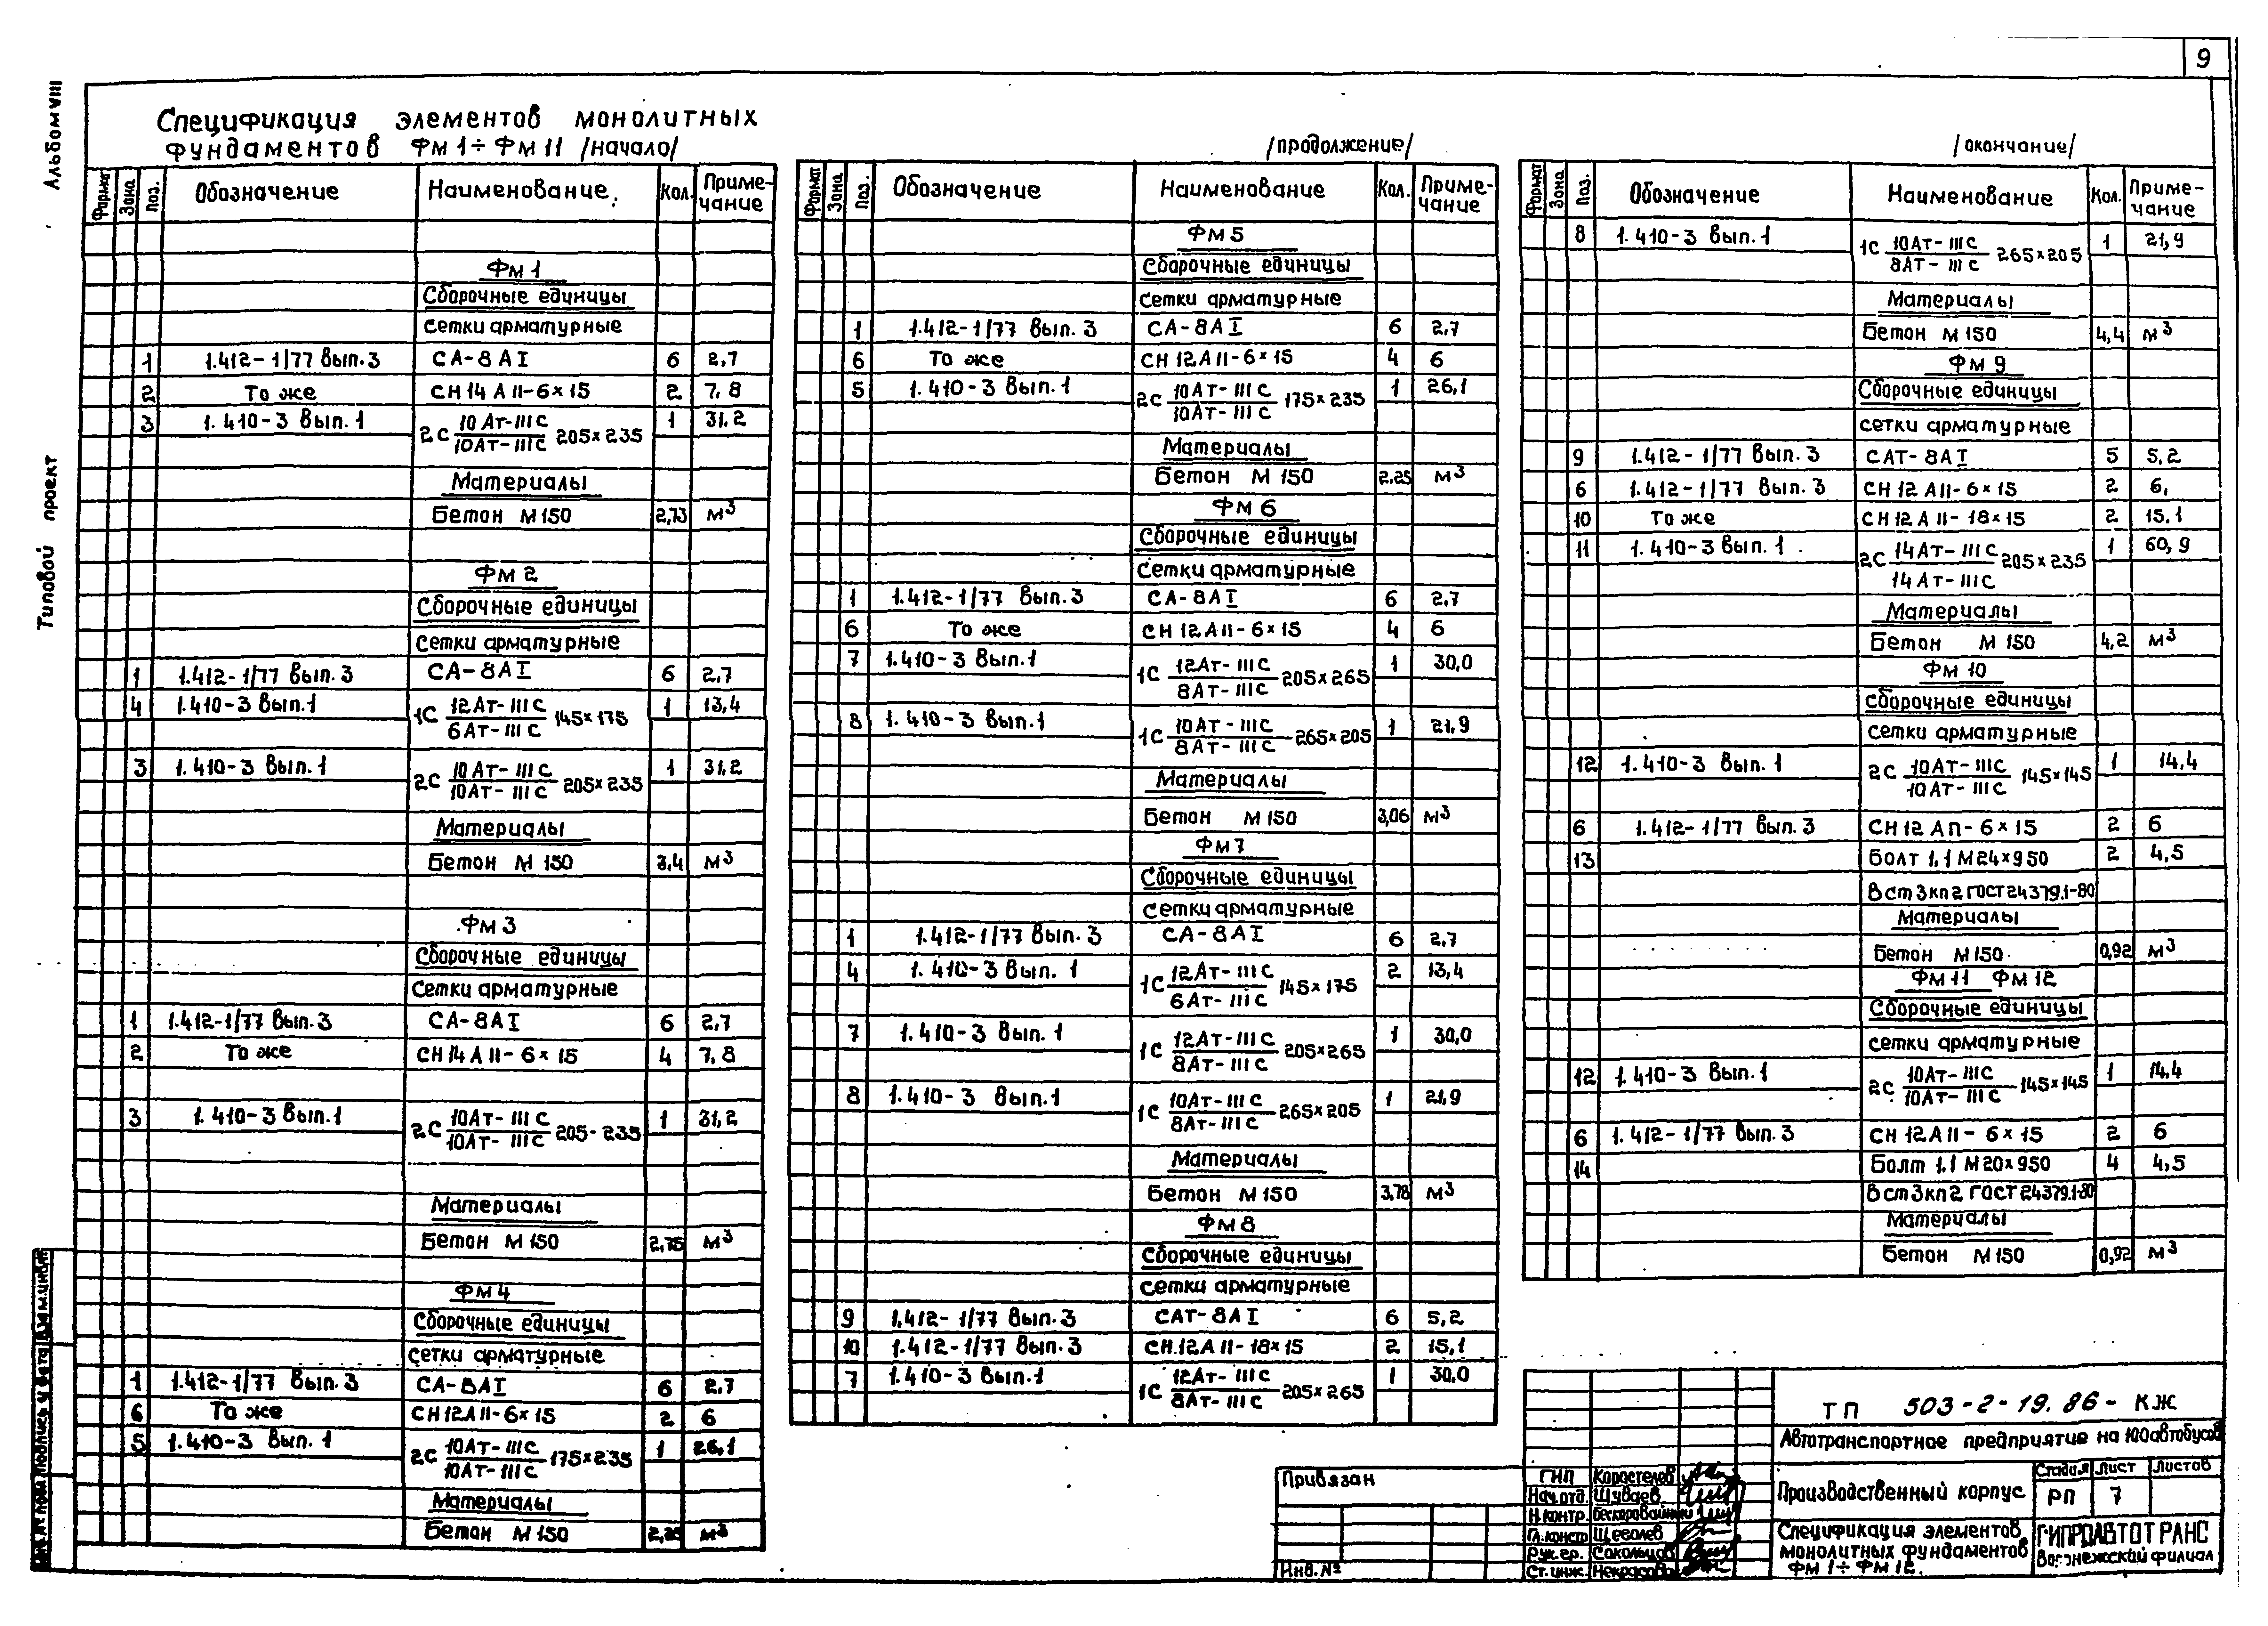 9
Альбом VIII
Типовой проект
Спецификация элементов монолитных
фундаментов Фм 1÷Фм 11 /начало/
Формат Зона Поз. Обозначение Наименование Кол. Приме-чание
Фм 1
Сборочные единицы
Сетки арматурные
1 1.412-1/77 вып.3 СА-8АI 6 2,7
2 То же СН14АII-6×15 2 7,8
3 1.410-3 вып.1 2С 10Ат-IIIС/10Ат-IIIС 205×235 1 31,2
Материалы
Бетон М150 2,73 м³
Фм 2
Сборочные единицы
Сетки арматурные
1 1.412-1/77 вып.3 СА-8АI 6 2,7
4 1.410-3 вып.1 1С 12Ат-IIIС/6Ат-IIIС 145×175 1 13,4
3 1.410-3 вып.1 2С 10Ат-IIIС/10Ат-IIIС 205×235 1 31,2
Материалы
Бетон М150 3,4 м³
Фм 3
Сборочные единицы
Сетки арматурные
1 1.412-1/77 вып.3 СА-8АI 6 2,7
2 То же СН14АII-6×15 4 7,8
3 1.410-3 вып.1 2С 10Ат-IIIС/10Ат-IIIС 205-235 1 31,2
Материалы
Бетон М150 2,75 м³
Фм 4
Сборочные единицы
сетки арматурные
1 1.412-1/77 вып.3 СА-8АI 6 2,7
6 То же СН12АII-6×15 2 6
5 1.410-3 вып.1 2С 10Ат-IIIС/10Ат-IIIС 175×235 1 26,1
Материалы
Бетон М150 2,25 м³
/продолжение/
Формат Зона Поз. Обозначение Наименование Кол. Приме-чание
Фм 5
Сборочные единицы
сетки арматурные
1 1.412-1/77 вып.3 СА-8АI 6 2,7
6 То же СН12АII-6×15 4 6
5 1.410-3 вып.1 2С 10Ат-IIIС/10Ат-IIIС 175×235 1 26,1
Материалы
Бетон М150 2,25 м³
Фм 6
Сборочные единицы
Сетки арматурные
1 1.412-1/77 вып.3 СА-8АI 6 2,7
6 То же СН12АII-6×15 4 6
7 1.410-3 вып.1 1С 12Ат-IIIС/8Ат-IIIС 205×265 1 30,0
8 1.410-3 вып.1 1С 10Ат-IIIС/8Ат-IIIС 265×205 1 21,9
Материалы
Бетон М150 3,06 м³
Фм 7
Сборочные единицы
сетки арматурные
1 1.412-1/77 вып.3 СА-8АI 6 2,7
4 1.410-3 вып.1 1С 12Ат-IIIС/6Ат-IIIС 145×175 2 13,4
7 1.410-3 вып.1 1С 12Ат-IIIС/8Ат-IIIС 205×265 1 30,0
8 1.410-3 вып.1 1С 10Ат-IIIС/8Ат-IIIС 265×205 1 21,9
Материалы
Бетон М150 3,78 м³
Фм 8
Сборочные единицы
сетки арматурные
9 1.412-1/77 вып.3 САТ-8АI 6 5,2
10 1.412-1/77 вып.3 СН.12АII-18×15 2 15,1
7 1.410-3 вып.1 1С 12Ат-IIIС/8Ат-IIIС 205×265 1 30,0
/окончание/
Формат Зона Поз. Обозначение Наименование Кол. Приме-чание
8 1.410-3 вып.1 1С 10Ат-IIIС/8Ат-IIIС 265×205 1 21,9
Материалы
Бетон М150 4,4 м³
Фм 9
Сборочные единицы
сетки арматурные
9 1.412-1/77 вып.3 САТ-8АI 5 5,2
6 1.412-1/77 вып.3 СН12АII-6×15 2 6,
10 То же СН12АII-18×15 2 15,1
11 1.410-3 вып.1 2С 14Ат-IIIС/14Ат-IIIС 205×235 1 60,9
Материалы
Бетон М150 4,2 м³
Фм 10
Сборочные единицы
сетки арматурные
12 1.410-3 вып.1 2С 10Ат-IIIС/10Ат-IIIС 145×145 1 14,4
6 1.412-1/77 вып.3 СН12АП-6×15 2 6
13 Болт 1.1М24×950 2 4,5
Вст3кп2 ГОСТ24379.1-80
Материалы
Бетон М150 0,92 м³
Фм 11 Фм 12
Сборочные единицы
сетки арматурные
12 1.410-3 вып.1 2С 10Ат-IIIС/10Ат-IIIС 145×145 1 14,4
6 1.412-1/77 вып.3 СН12АII-6×15 2 6
14 Болт 1.1М20×950 4 4,5
Вст3кп2 ГОСТ24379.1-80
Материалы
Бетон М150 0,92 м³
Привязан
Инв.№
ГИП Коростелев
Нач.отд. Шуваев
Н.контр.
Гл.констр Щеголев
Рук.гр. Сокольцов
Ст.инж. Некрасова
ТП 503-2-19.86-КЖ
Автотранспортное предприятие на 100 автобусов
Производственный корпус
Стадия Лист Листов
РП 7
Спецификация элементов
монолитных фундаментов
Фм 1÷Фм 12.
ГИПРОАВТОТРАНС
Воронежский филиал